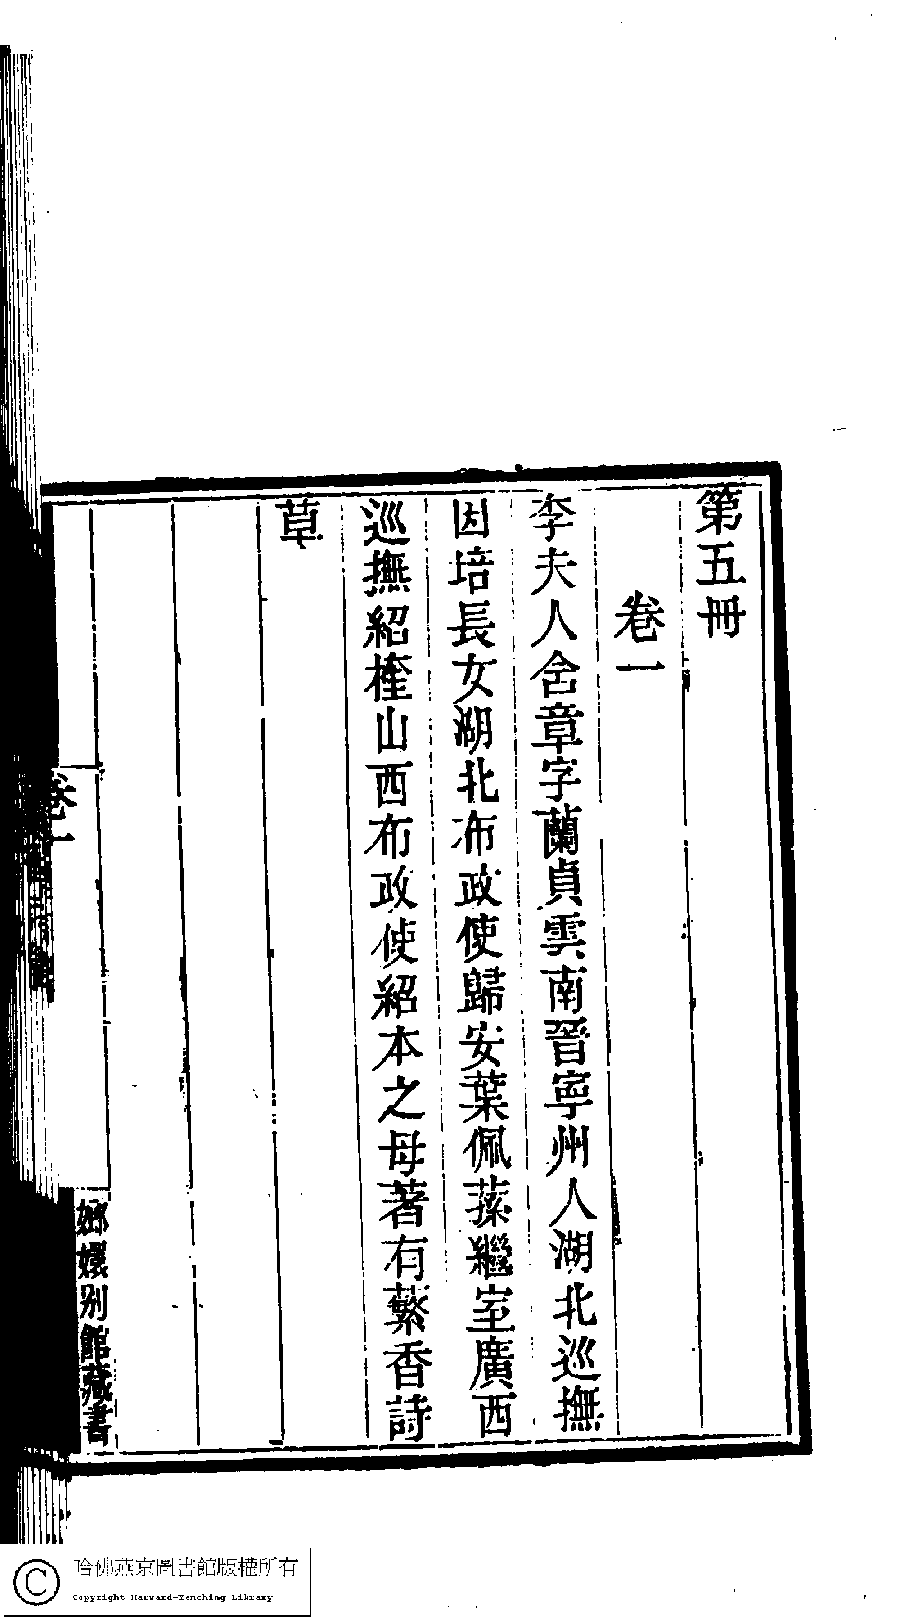 第五冊
卷一
李夫人含章字蘭貞雲南晉寧州人湖北巡撫
因培長女湖北布政使歸安葉佩蓀繼室廣西
巡撫紹楏山西布政使紹本之母著有蘩香詩
草
卷一
嫏嬛別館藏書
哈佛燕京圖書館版權所有
Copyright Harvard-Yenching Library